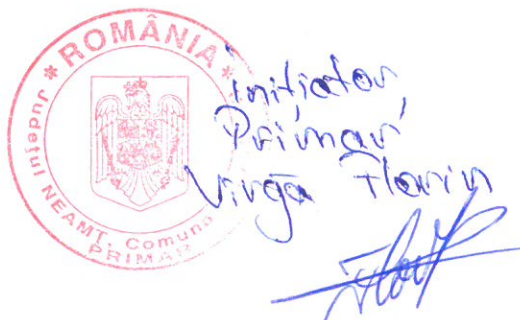 * ROMÂNIA *
Județul NEAMȚ, Comuna
PRIMAR
inițiator,
Primar,
Virgă Florin